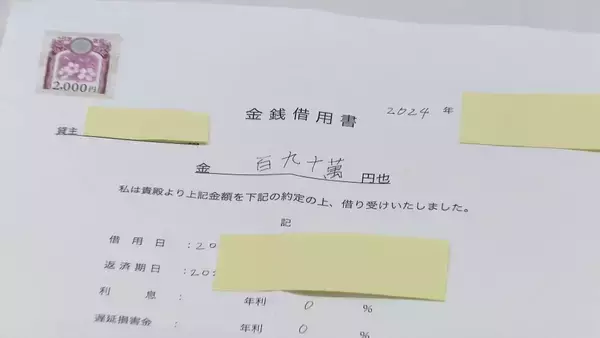 2,000円
金銭借用書
2024 年
貸主
金 百九十萬 円也
私は貴殿より上記金額を下記の約定の上、借り受けいたしました。
記
借用日 :20
返済期日 :20
利息 : 年利 0 %
遅延損害金 : 年利 0 %